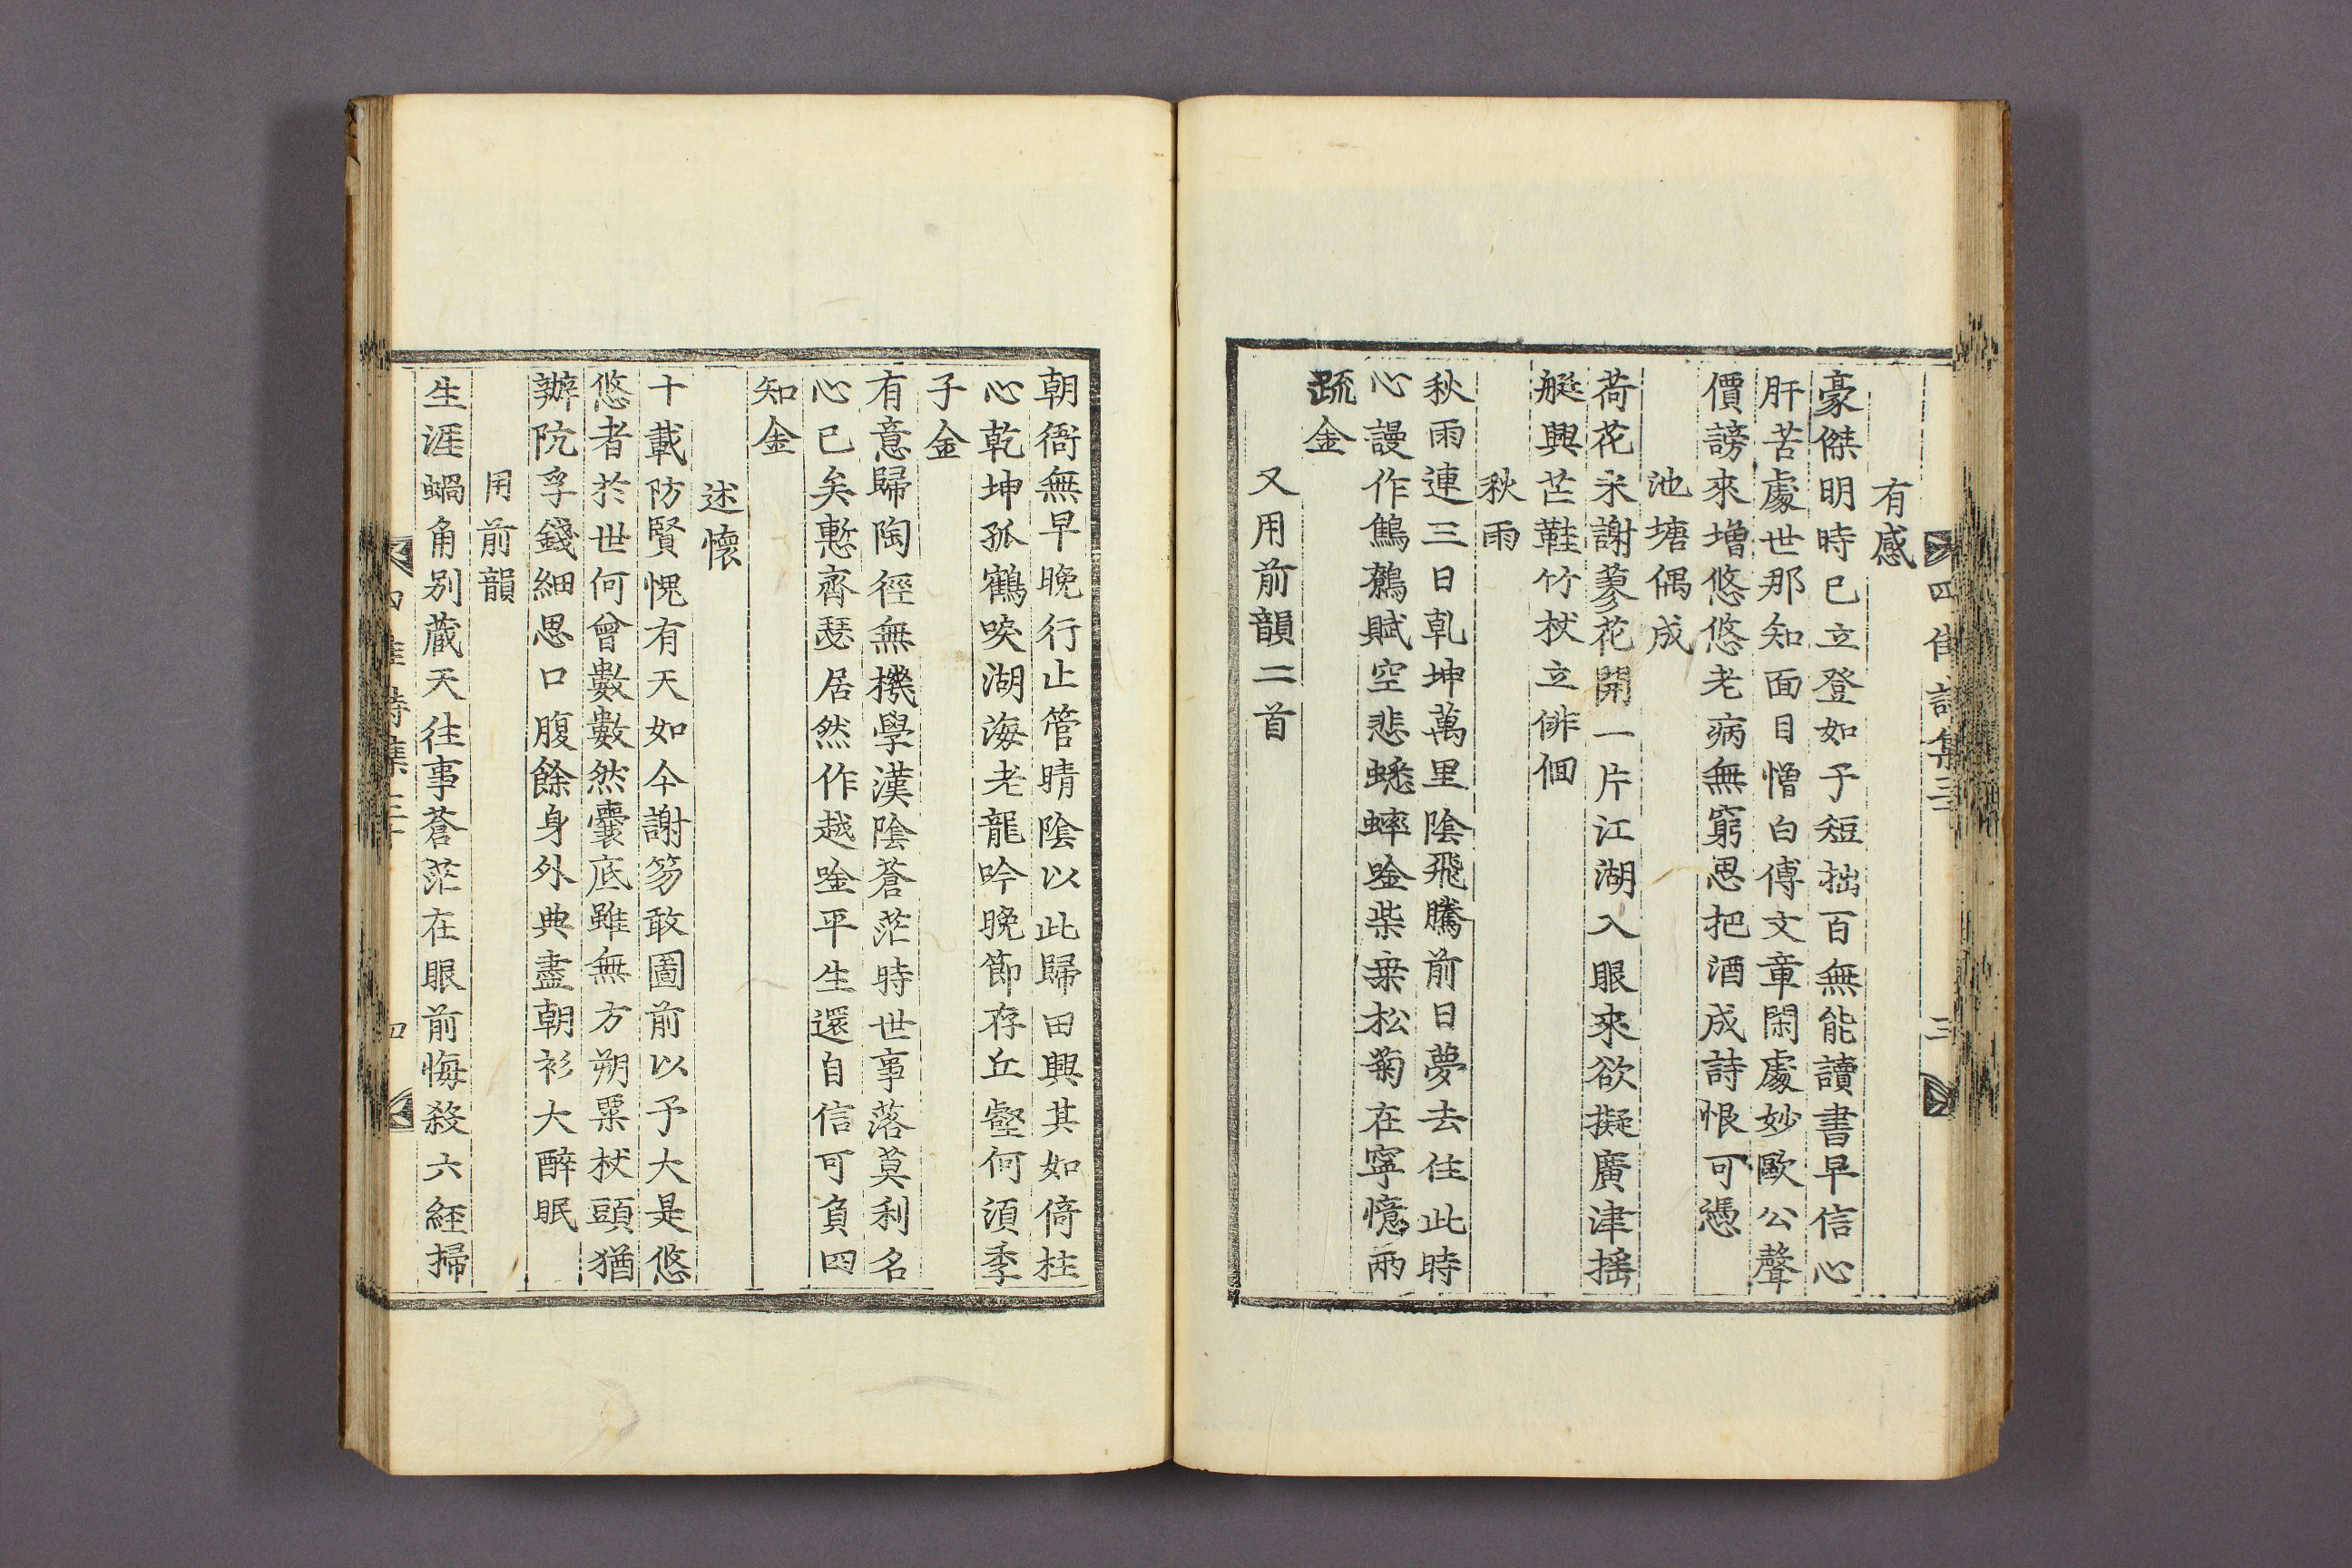 有感
豪傑明時已立登如予短拙百無能讀書早信心
肝苦處世那知面目憎白傅文章閑處妙歐公聲
價謗來增悠悠老病無窮思把酒成詩恨可憑
池塘偶成
荷花未謝蓼花開一片江湖入眼來欲擬廣津搖
艇興芒鞋竹杖立徘徊
秋雨
秋雨連三日乹坤萬里陰飛騰前日夢去住此時
心謾作鷦鷯賦空悲蟋蟀唫柴桑松菊在寧憶兩
疏金
又用前韻二首
四隹詩集三
三
朝衙無早晚行止管晴陰以此歸田興其如倚柱
心乾坤孤鶴唳湖海老龍吟晚節存丘壑何須季
子金
有意歸陶徑無機學漢陰蒼茫時世事落莫利名
心已矣慙齊瑟居然作越唫平生還自信可負四
知金
述懷
十載防賢愧有天如今謝笏敢圖前以予大是悠
悠者於世何曾數數然囊底雖無方朔粟杖頭猶
辦阮孚錢細思口腹餘身外典盡朝衫大醉眠
用前韻
生涯蝸角別藏天往事蒼茫在眼前悔殺六經掃
四